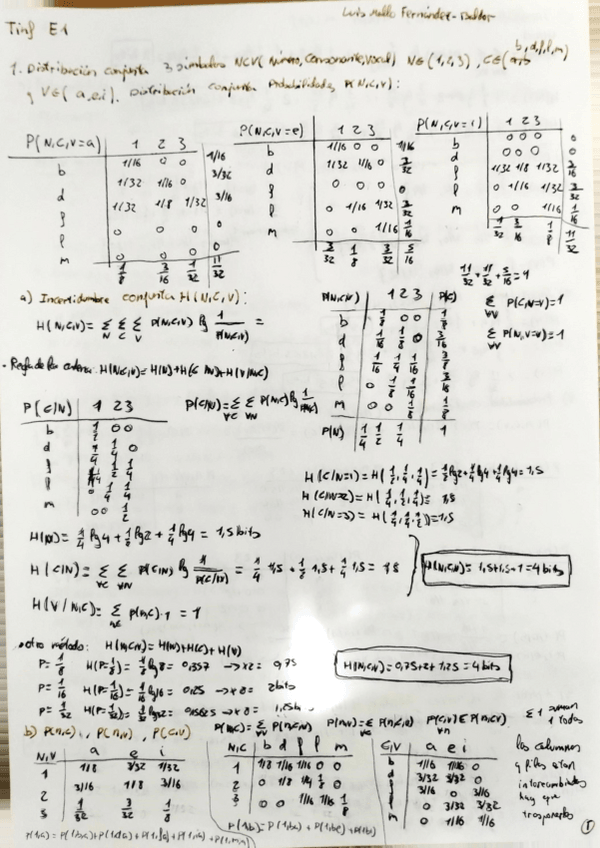 Tinf E1
Luis Mollo Fernández-
1. Distribución conjunta 3 símbolos NCV (Número, Consonante, Vocal) N∈(1,2,3), C∈( b,d,f,l,m)
y V∈( a,e,i). Distribución conjunta Probabilidades, P(N,C,V):
P(N,C,V=a) 1 2 3
b 1/16 0 0 1/16
d 1/32 1/16 0 3/32
f 1/32 1/8 1/32 3/16
l 0 0 0 0
m 0 0 0 0
1/8 3/16 1/32 11/32
P(N,C,V=e) 1 2 3
b 1/16 0 0 1/16
d 1/32 1/16 0 3/32
f 0 0 0 0
l 0 1/16 1/32 3/32
m 0 0 1/16 1/16
3/32 1/8 3/32 5/16
P(N,C,V=i) 1 2 3
b 0 0 0 0
d 0 0 0 0
f 1/32 1/8 1/32 3/16
l 0 1/16 1/32 3/32
m 0 0 1/16 1/16
1/32 3/16 1/8 11/32
11/32 + 11/32 + 5/16 = 1
a) Incertidumbre conjunta H(N,C,V):
H(N,C,V) = Σ Σ Σ P(N,C,V) lg 1/P(N,C,V) =
P(N,C,V) 1 2 3 P(C)
b 1/8 0 0 1/8
d 1/16 1/8 0 3/16
f 1/16 1/4 1/16 3/8
l 0 1/8 1/16 3/16
m 0 0 1/8 1/8
P(N) 1/4 1/2 1/4 1
Σ P(C,N=v)=1
Σ P(N,V=v)=1
· Regla de la cadena: H(N,C,V)= H(N)+H(C/N)+H(V/N,C)
P(C/N) 1 2 3
b 1/2 0 0
d 1/4 1/4 0
f 1/4 1/2 1/4
l 0 1/4 1/4
m 0 0 1/2
H(C/N=1) = H(1/2,1/4,1/4) = 1/2 lg2 + 1/4 lg4 + 1/4 lg4 = 1,5
H(C/N=2) = H(1/4,1/2,1/4) = 1,5
H(C/N=3) = H(1/4,1/4,1/2) = 1,5
H(N) = 1/4 lg4 + 1/2 lg2 + 1/4 lg4 = 1,5 bits
H(C/N) = Σ Σ P(C,N) lg 1/P(C/N) = 1/4 1,5 + 1/2 1,5 + 1/4 1,5 = 1,5
H(N,C,V) = 1,5+1,5+1 = 4 bits
H(V/N,C) = Σ P(N,C)·1 = 1
· otro método: H(N,C,V) = H(N)+H(C)+H(V)
P= 1/8 H(P=1/8) = 1/8 lg 8 = → x2 = 0,75
P= 1/16 H(P=1/16) = 1/16 lg16 = 0,25 → x8 = 2 bits
P= 1/32 H(P=1/32) = 1/32 lg32 = 0,15625 → x8 =
H(N,C,V) = 0,75+2+1,25 = 4 bits
b) P(N,C), P(N,V), P(C,V)
P(N,C) = Σ P(N,C,V) P(N,V) = Σ P(N,C,V) P(C,V) Σ P(N,C,V)
N,V a e i
1 1/8 3/32 1/32
2 3/16 1/8 3/16
3 1/32 3/32 1/8
N,C b d f l m
1 1/8 1/16 1/16 0 0
2 0 1/8 1/4 1/8 0
3 0 0 1/16 1/16 1/8
C,V a e i
b 1/16 1/16 0
d 3/32 3/32 0
f 3/16 0 3/16
l 0 3/32 3/32
m 0 1/16 1/16
Σ 1 suman
1 todas
las columnas
y filas están
intercambiadas
hay que
trasponerlas